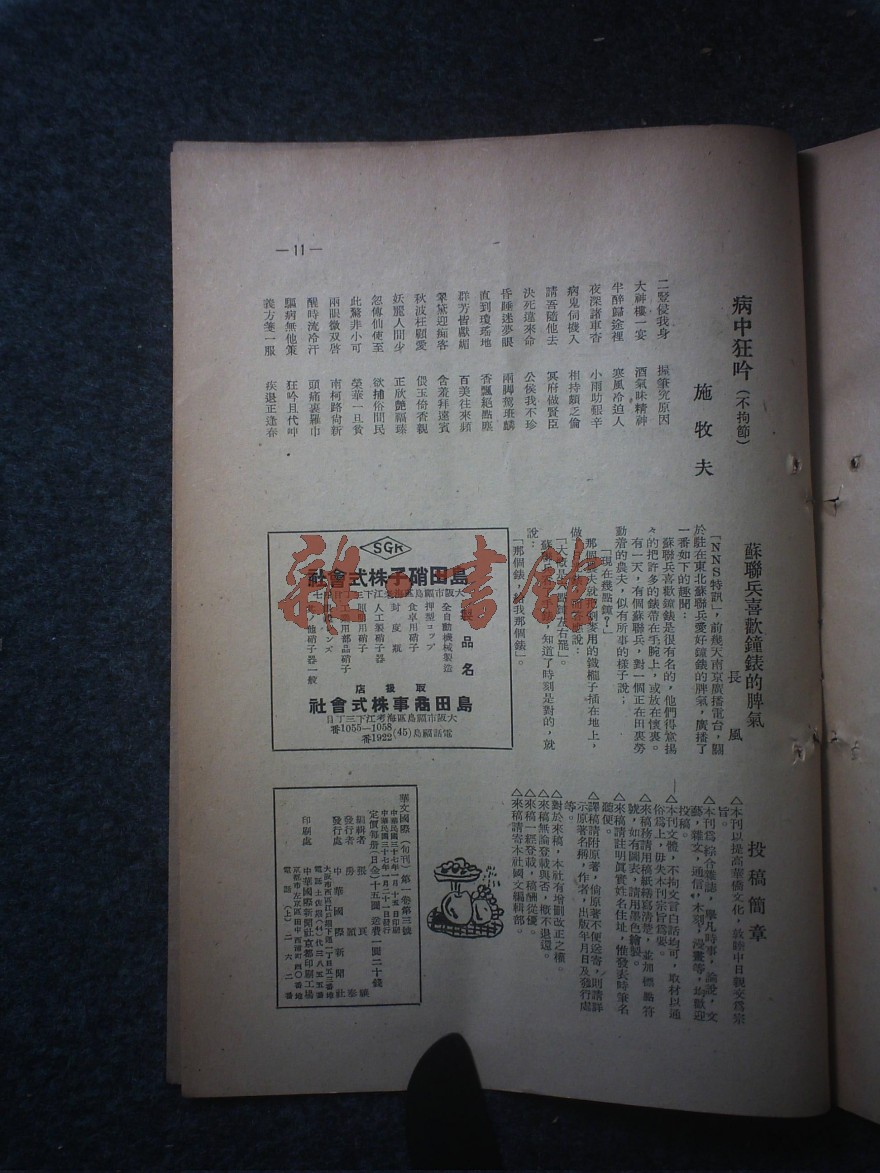 —11—
病中狂吟（不拘節）
施牧夫
二竪侵我身　握筆究原因
大神樓一宴　酒氣味精神
半醉歸途裡　寒風冷迫人
夜深諸車杳　小雨助艱辛
病鬼伺機入　相持頗乏倫
請吾隨他去　冥府做賢臣
決死遠來命　公侯我不珍
昏睡迷夢眼　兩脚駕麒麟
直到瓊瑤地　香飄絕點塵
群芳皆獻媚　百美往來頻
翠黛迎痴客　含羞拜遠賓
秋波枉顧愛　偎玉倚香親
妖寵人間少　正欣艷福臻
忽傳仙使至　欲捕俗間民
此驚非小可　榮華一旦貧
兩眼微双啓　南柯路尚新
醒時流冷汗　頭痛裹羅巾
驅病無他策　狂吟且代呻
義方箋一服　疾退正逢春
蘇聯兵喜歡鐘錶的脾氣
長風
「NNS特訊」，前幾天南京廣播電台，關
於駐在東北蘇聯兵愛好鐘錶的脾氣，廣播了
一番如下的趣聞：
蘇聯兵喜歡鐘錶是很有名的，他們得意揚
々的把許多的錶帶在毛腕上，或放在懷裏。
有一天，有個蘇聯兵，對一個正在田裏勞
動着的農夫，似有所事的樣子說；
「現在幾點鐘？」
那個農夫就把割麥用的鐵櫳子插在地上，
做
「大概是
蘇聯兵
知道了時刻是對的，就
說：
「那個錶，給我那個錶」。
SGK
島田硝子株式會社
大阪市福島區海老江下三丁目
製品名
全自動機械製造
押型コップ
食卓用硝子
封度瓶
人工製硝子器
照明用硝子
工業用部品硝子
レンズ
其ノ他硝子器一般
取扱店
島田商事株式會社
大阪市福島區海老江下三丁目
電話福島(45) 1055—1058番
1922番
投稿簡章
△本刊以提高華僑文化，敦睦中日親交爲宗
旨。
△本刊爲綜合雜誌，舉凡時事，論說，文
藝，雜文，通信，木刻，漫畫等，均歡迎
投稿。
△本刊文體，不拘文言白話均可，取材以通
俗爲上，毋失本刊宗旨爲要。
△來稿務請用稿紙繕寫清楚，並加標點符
號，如有圖表，請用墨色繪製。
△來稿請註明眞實姓名住址，惟發表時筆名
聽便。
△譯稿請附原著，倘原著不便送寄，則請詳
示原著名稱，作者，出版年月日及發行處
等。
△對於來稿，本社有增刪改正之權。
△來稿無論登載與否，概不退還。
△來稿一經登載，稿酬從優。
△來稿請寄本社國文編輯部。
華文國際（旬刊）第一卷第三號
中華民國三十七年一月十五日印刷
中華民國三十七年一月二十一日發行
定價每冊（日金）十五圓　送費一圓二十錢
編輯者
發行者
發行處　中華國際新聞社
大阪市西區江戶堀下通一丁目五三番地
電話土佐堀(44)代三八五五番
印刷處　中華國際新聞社京都印刷工場
京都市左京區田中西浦町四〇番地
電話（上）二六二番
雜·書館